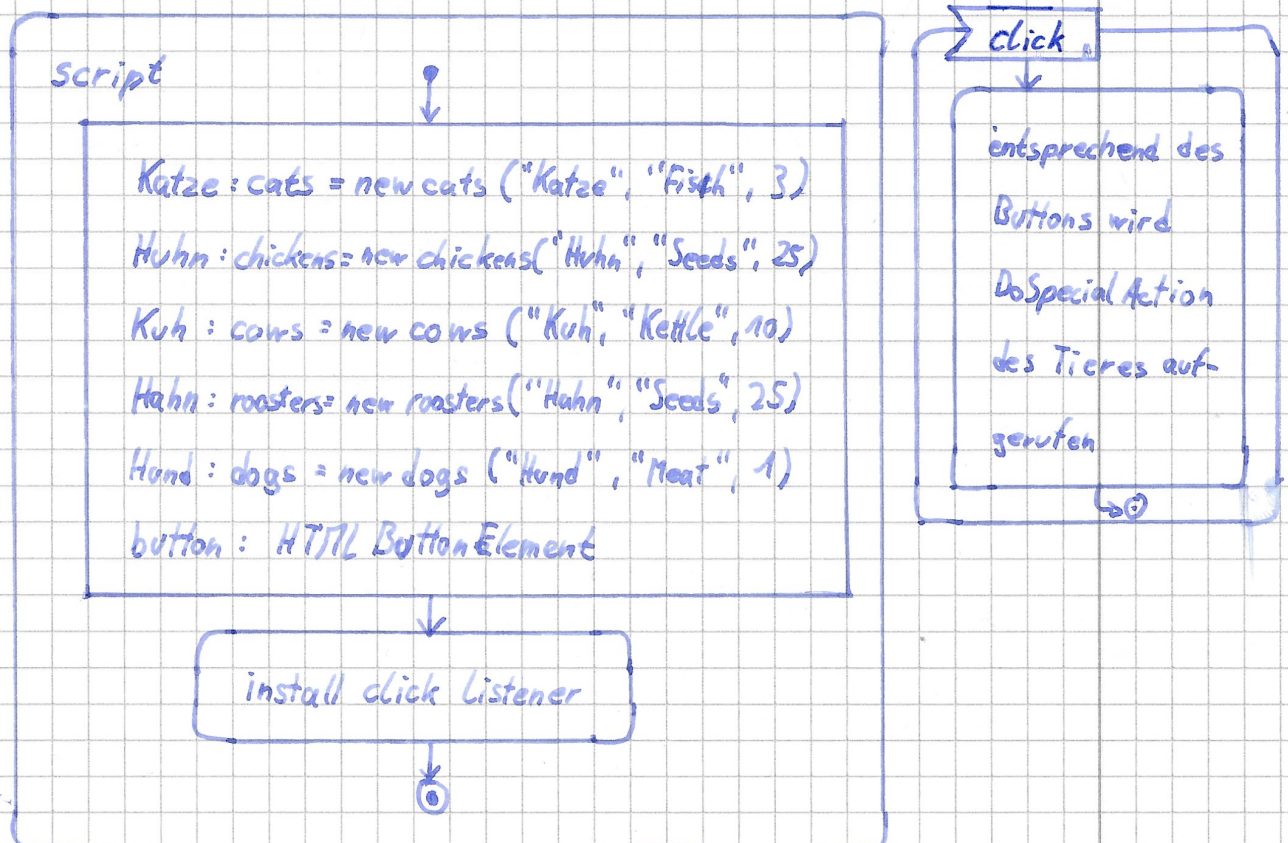 script
Katze : cats = new cats ("Katze", "Fisch", 3)
Huhn : chickens = new chickens("Huhn", "Seeds", 25)
Kuh : cows = new cows ("Kuh", "Kettle", 10)
Hahn : roosters = new roosters("Hahn", "Seeds", 25)
Hund : dogs = new dogs ("Hund", "Meat", 1)
button : HTML ButtonElement
install click listener
click
entsprechend des
Buttons wird
DoSpecialAction
des Tieres auf-
gerufen